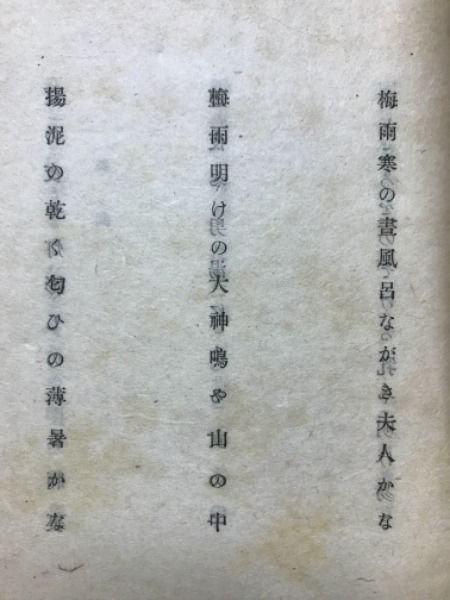 梅雨寒の晝風呂ながき夫人かな
梅雨明けの大神鳴や山の中
揚泥の乾く匂ひの薄暑かな